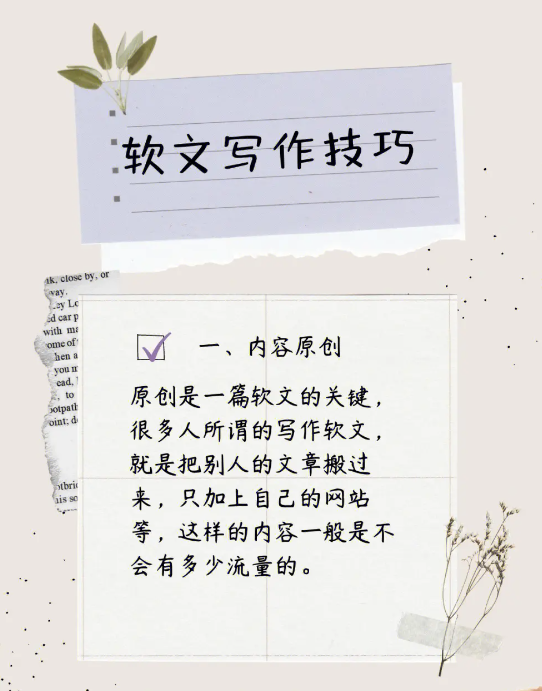 软文写作技巧
lk, close by, or
way.
ey Lo
ed car p
with ma
ome of
hen a
you m
ead,
, to
ootpath
oint; d
otbri
his so
一、内容原创
原创是一篇软文的关键，
很多人所谓的写作软文，
就是把别人的文章搬过
来，只加上自己的网站
等，这样的内容一般是不
会有多少流量的。